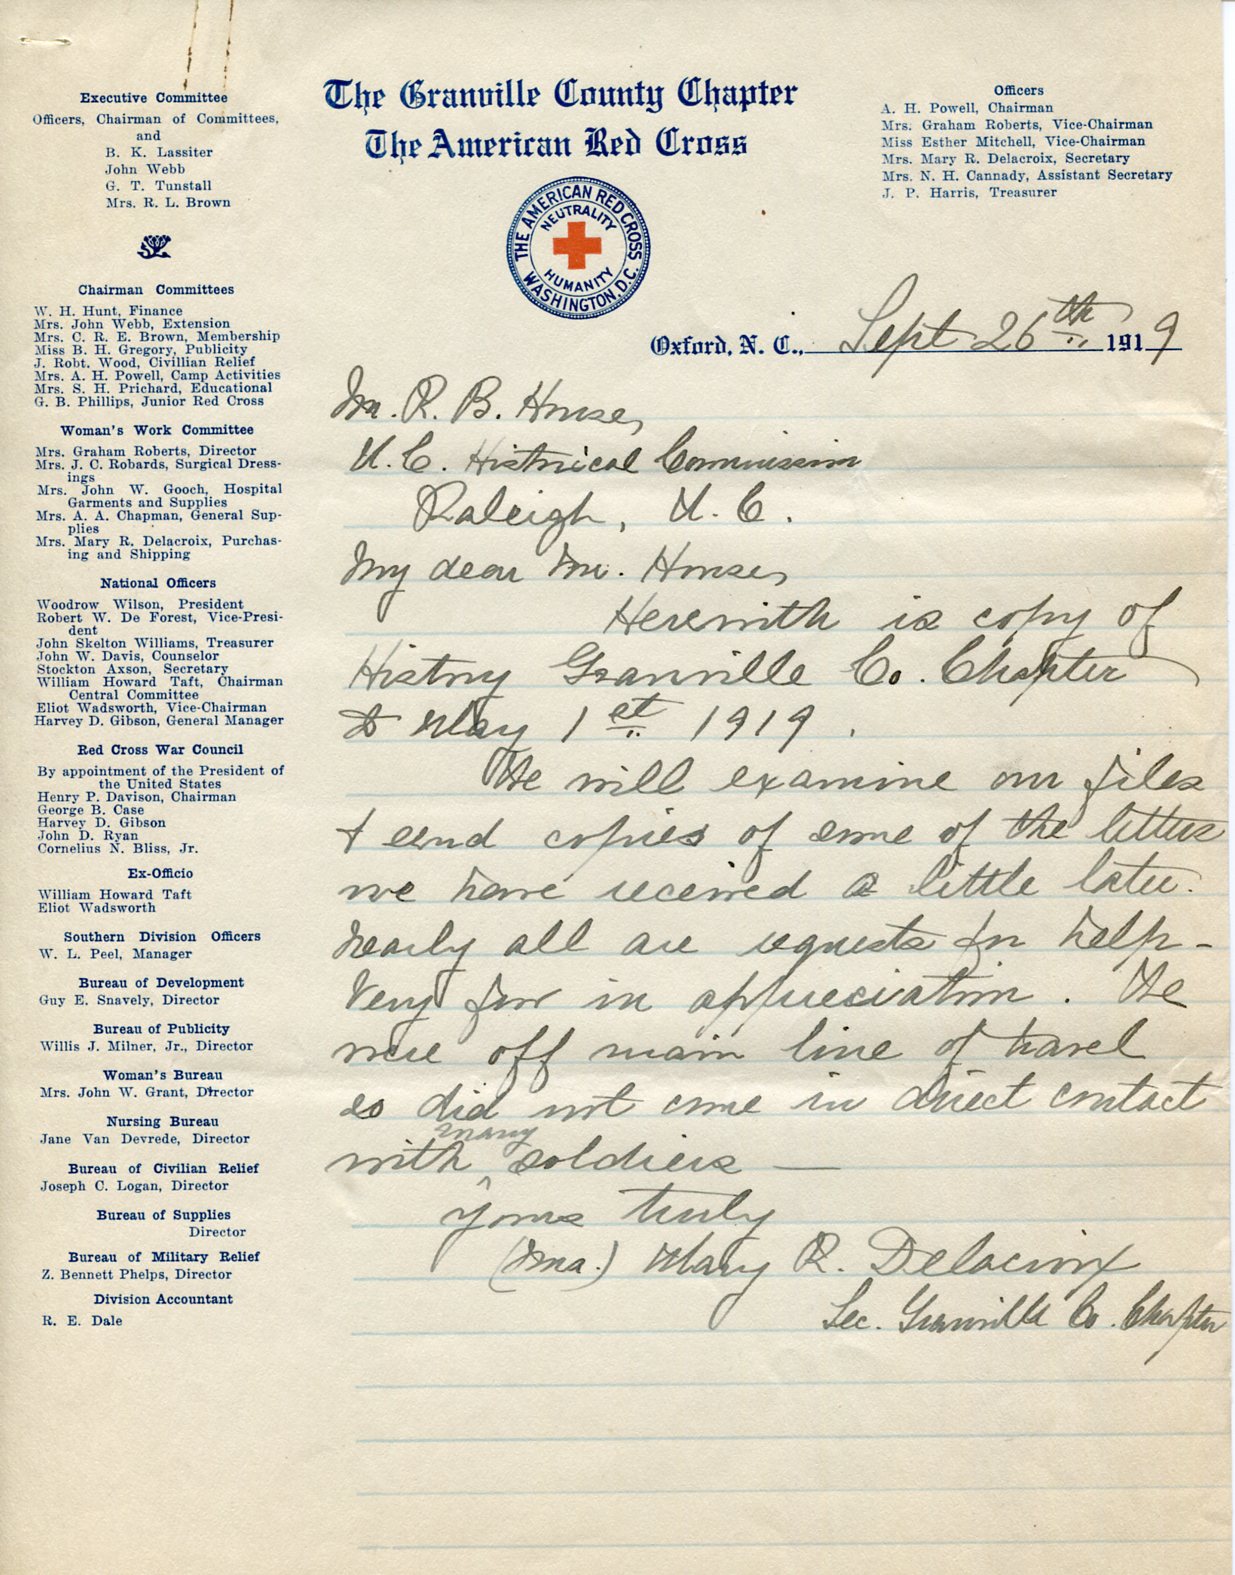 The Granville County Chapter
The American Red Cross
THE AMERICAN RED CROSS
NEUTRALITY
HUMANITY
WASHINGTON, D.C.
Executive Committee
Officers, Chairman of Committees,
and
B. K. Lassiter
John Webb
G. T. Tunstall
Mrs. R. L. Brown
Chairman Committees
W. H. Hunt, Finance
Mrs. John Webb, Extension
Mrs. C. R. E. Brown, Membership
Miss B. H. Gregory, Publicity
J. Robt. Wood, Civillian Relief
Mrs. A. H. Powell, Camp Activities
Mrs. S. H. Prichard, Educational
G. B. Phillips, Junior Red Cross
Woman's Work Committee
Mrs. Graham Roberts, Director
Mrs. J. C. Robards, Surgical Dress-
ings
Mrs. John W. Gooch, Hospital
Garments and Supplies
Mrs. A. A. Chapman, General Sup-
plies
Mrs. Mary R. Delacroix, Purchas-
ing and Shipping
National Officers
Woodrow Wilson, President
Robert W. De Forest, Vice-Presi-
dent
John Skelton Williams, Treasurer
John W. Davis, Counselor
Stockton Axson, Secretary
William Howard Taft, Chairman
Central Committee
Eliot Wadsworth, Vice-Chairman
Harvey D. Gibson, General Manager
Red Cross War Council
By appointment of the President of
the United States
Henry P. Davison, Chairman
George B. Case
Harvey D. Gibson
John D. Ryan
Cornelius N. Bliss, Jr.
Ex-Officio
William Howard Taft
Eliot Wadsworth
Southern Division Officers
W. L. Peel, Manager
Bureau of Development
Guy E. Snavely, Director
Bureau of Publicity
Willis J. Milner, Jr., Director
Woman's Bureau
Mrs. John W. Grant, Director
Nursing Bureau
Jane Van Devrede, Director
Bureau of Civilian Relief
Joseph C. Logan, Director
Bureau of Supplies
Director
Bureau of Military Relief
Z. Bennett Phelps, Director
Division Accountant
R. E. Dale
Officers
A. H. Powell, Chairman
Mrs. Graham Roberts, Vice-Chairman
Miss Esther Mitchell, Vice-Chairman
Mrs. Mary R. Delacroix, Secretary
Mrs. N. H. Cannady, Assistant Secretary
J. P. Harris, Treasurer
Oxford, N. C., Sept 26th 1919
Mr. R. B. House,
N. C. Historical Commission
Raleigh, N. C.
My dear Mr. House,
Herewith is copy of
History Granville Co. Chapter
to May 1st 1919.
We will examine our files
+ send copies of some of the letters
we have received a little later.
Nearly all are requests for help -
Very few in appreciation. We
were off main line of travel
so did not come in direct contact
with many soldiers —
Yours truly
(Mrs.) Mary R. Delacroix
Sec. Granville Co. Chapter